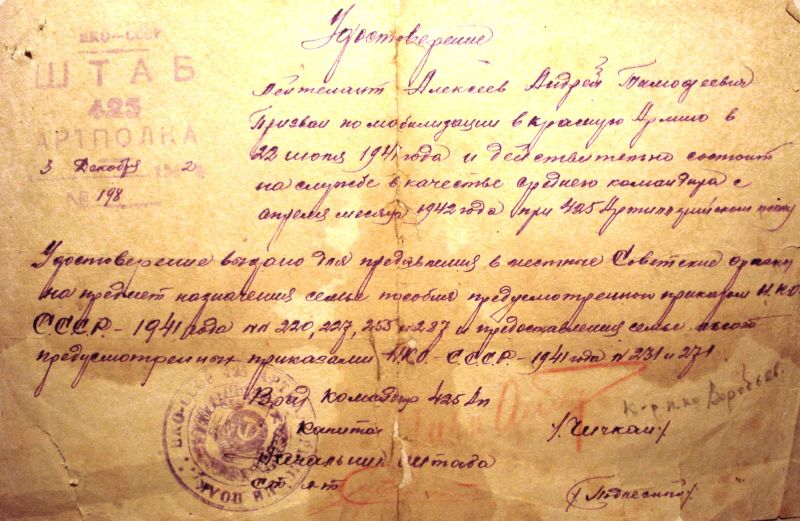 Удостоверение
НКО-СССР
ШТАБ
425
АРТПОЛКА
3 Декабря 194 2
№ 198
Лейтенант Алексеев Андрей Тимофеевич
Призван по мобилизации в красную Армию в
22 июня 1941 года и действительно состоит
на службе в качестве среднего командира с
апреля месяца 1942 года при 425 Артиллерийском полку
Удостоверение выдано для представления в местные Советские органы
на предмет назначения семье пособия предусмотренного приказом НКО
СССР - 1941 года №№ 220, 227, 255 и 287 и предоставления семье льгот
предусмотренных приказами НКО-СССР - 1941 года № 231 и 271.
Врид командир 425 Ап
Капитан /Чичкан/
К-р п-ка Воробьев.
Начальник штаба
Ст. л-т
НКО-СССР 425 АРТ ПОЛК